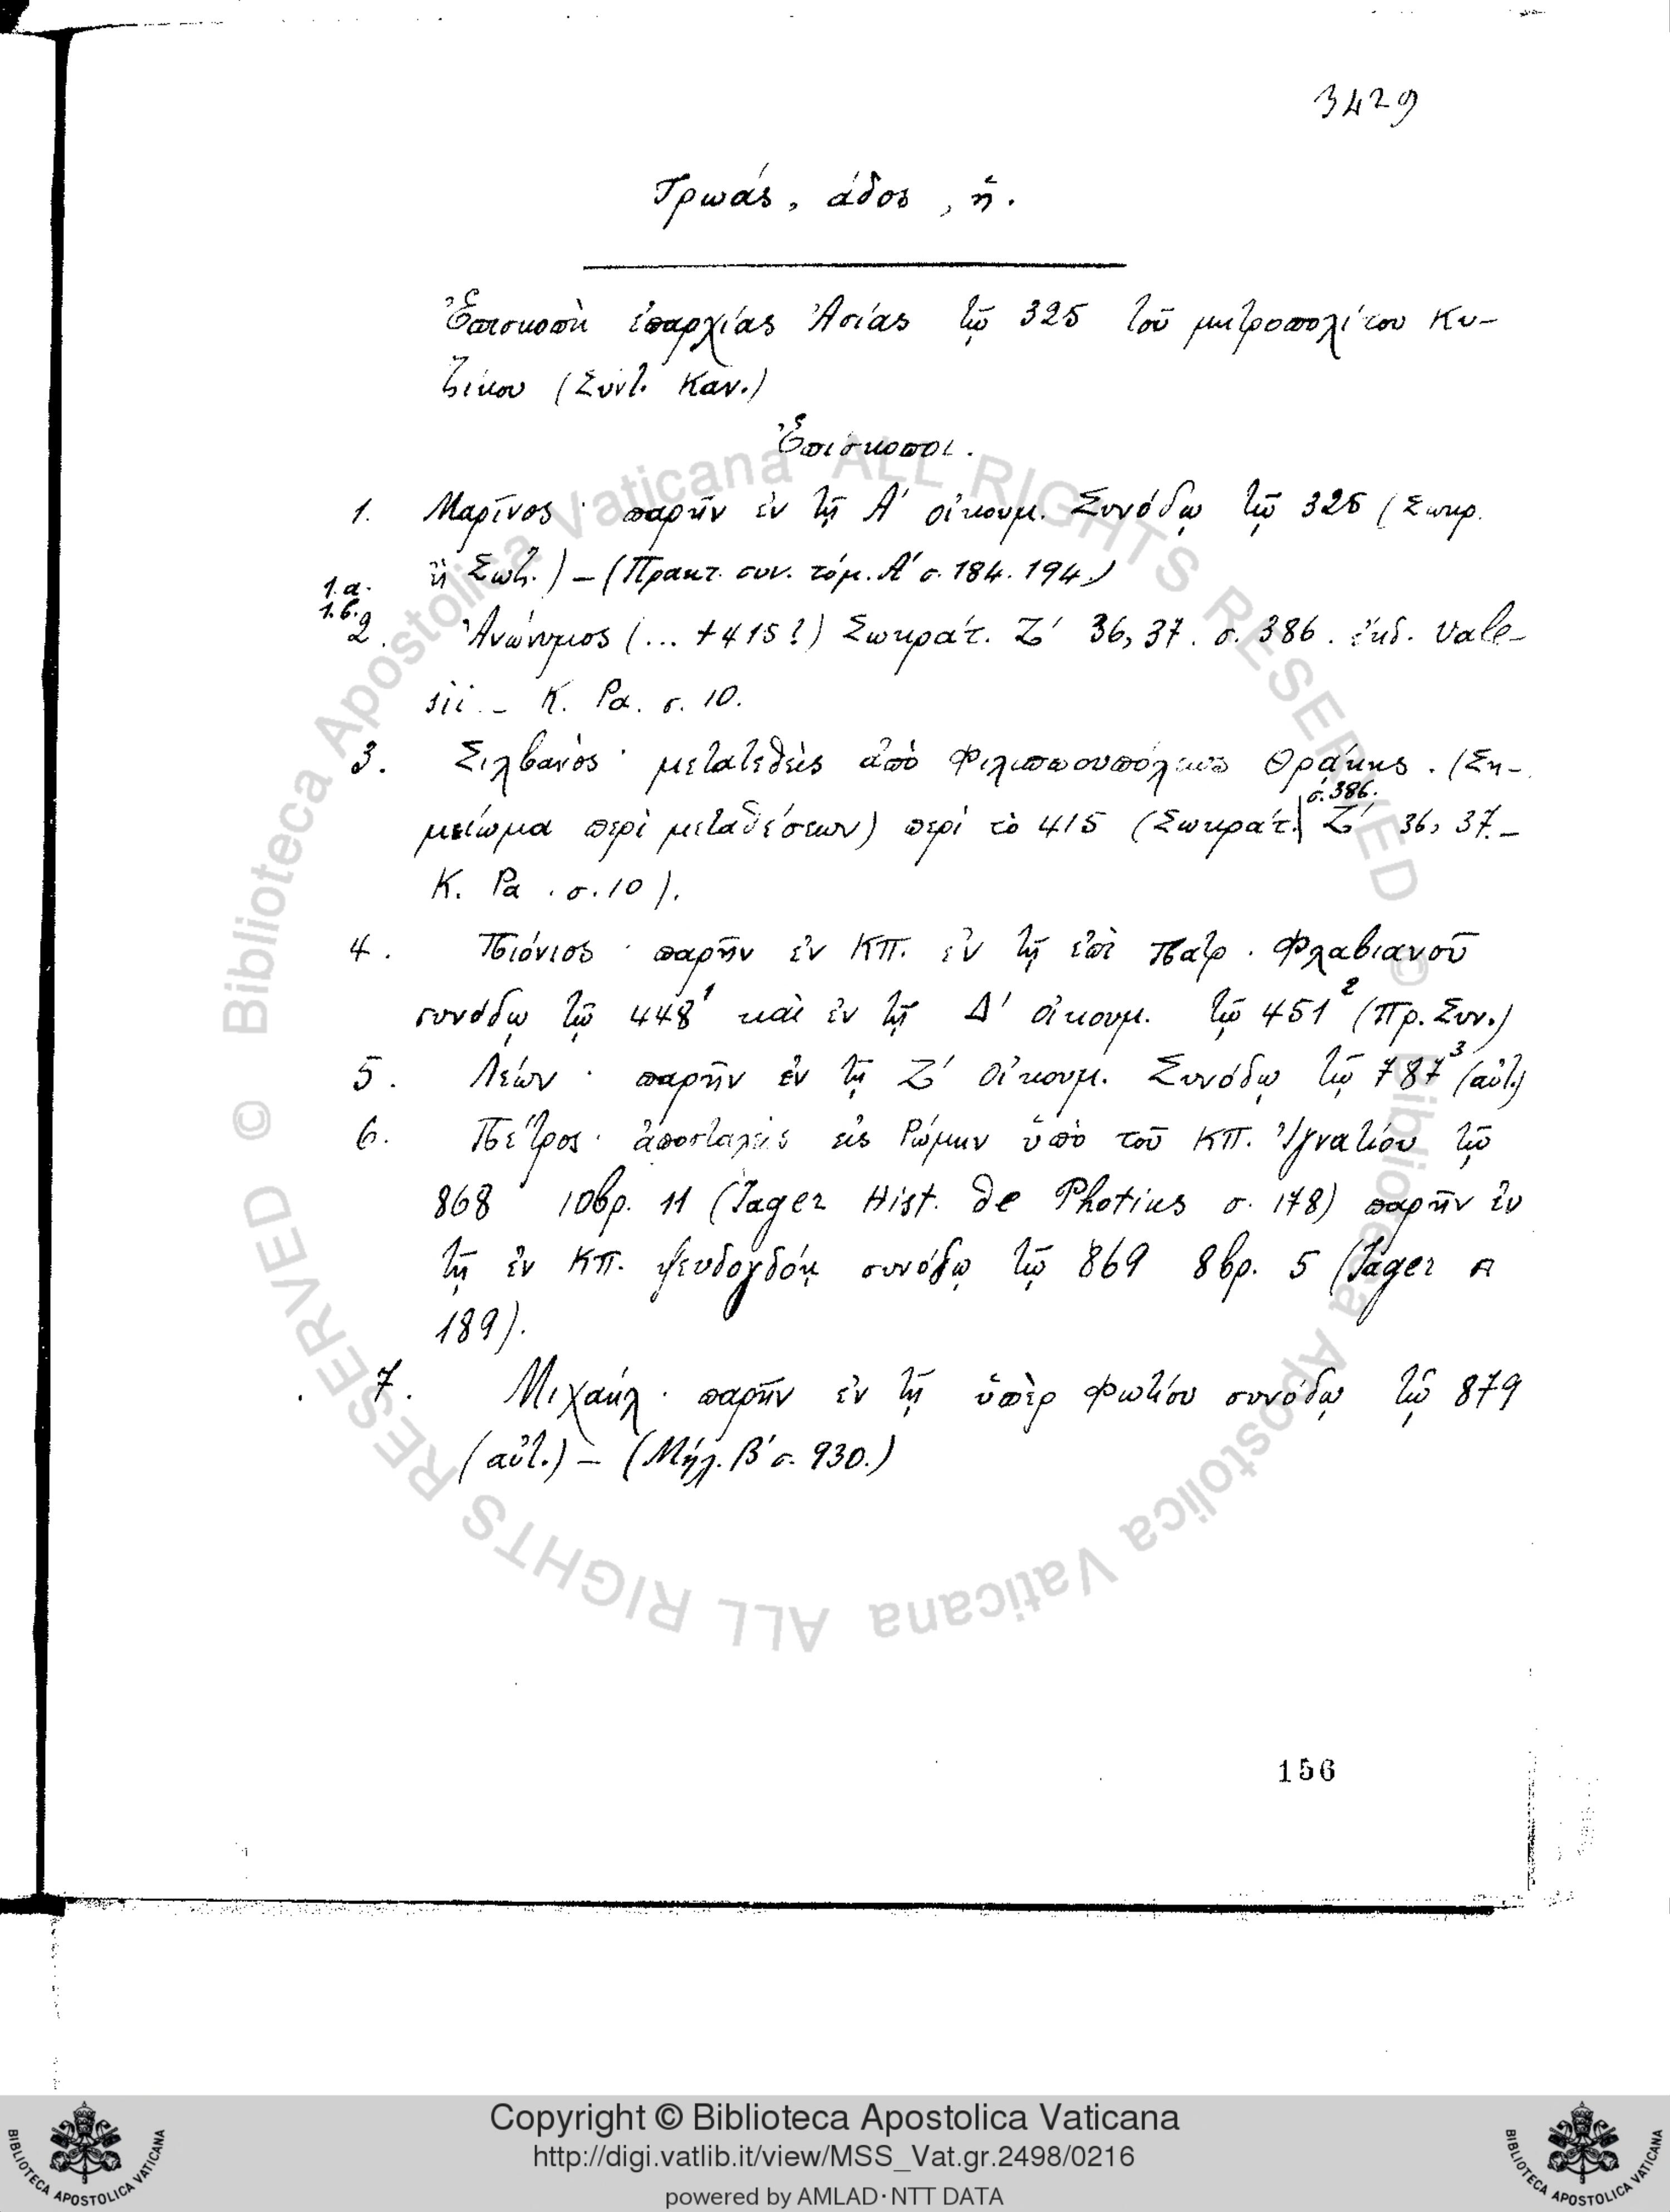 3429
Τρωάς, άδος, ἡ.
Ἐπισκοπὴ ἐπαρχίας Ἀσίας τῷ 325 τοῦ μητροπολίτου Κυ-
ζίκου (Σύντ. Καν.)
Ἐπίσκοποι.
1. Μαρῖνος · παρῆν ἐν τῇ Α΄ οἰκουμ. Συνόδῳ τῷ 325 (Σωκρ.
ἢ Σωζ.) – (Πρακτ. συν. τόμ. Α΄ σ. 184. 194.)
1.α.
1.β.
2. Ἀνώνυμος (... +415?) Σωκράτ. Ζ΄ 36, 37. σ. 386. ἐκδ. Vale-
sii. – K. Pa. σ. 10.
3. Σιλβανὸς · μετατεθεὶς ἀπὸ Φιλιππουπόλεως Θράκης. (Ση-
μείωμα περὶ μεταθέσεων) περὶ τὸ 415 (Σωκράτ. σ. 386. Ζ΄ 36, 37. –
K. Pa. σ. 10).
4. Πιόνιος · παρῆν ἐν ΚΠ. ἐν τῇ ἐπὶ Πατρ. Φλαβιανοῦ
συνόδῳ τῷ 448¹ καὶ ἐν τῇ Δ΄ οἰκουμ. τῷ 451² (Πρ. Συν.)
5. Λέων · παρῆν ἐν τῇ Ζ΄ Οἰκουμ. Συνόδῳ τῷ 787³ (αὐτ.)
6. Πέτρος · ἀποσταλεὶς εἰς Ῥώμην ὑπὸ τοῦ ΚΠ. Ἰγνατίου τῷ
868 10βρ. 11 (Jager Hist. de Photius σ. 178) παρῆν ἐν
τῇ ἐν ΚΠ. ψευδογδόῃ συνόδῳ τῷ 869 8βρ. 5 (Jager
189).
7. Μιχαὴλ · παρῆν ἐν τῇ ὑπὲρ Φωτίου συνόδῳ τῷ 879
(αὐτ.) – (Μήλ. Β΄ σ. 930.)
156
© Biblioteca Apostolica Vaticana ALL RIGHTS RESERVED
© Biblioteca Apostolica Vaticana ALL RIGHTS RESERVED
Copyright © Biblioteca Apostolica Vaticana
http://digi.vatlib.it/view/MSS_Vat.gr.2498/0216
powered by AMLAD·NTT DATA
BIBLIOTECA APOSTOLICA VATICANA
BIBLIOTECA APOSTOLICA VATICANA